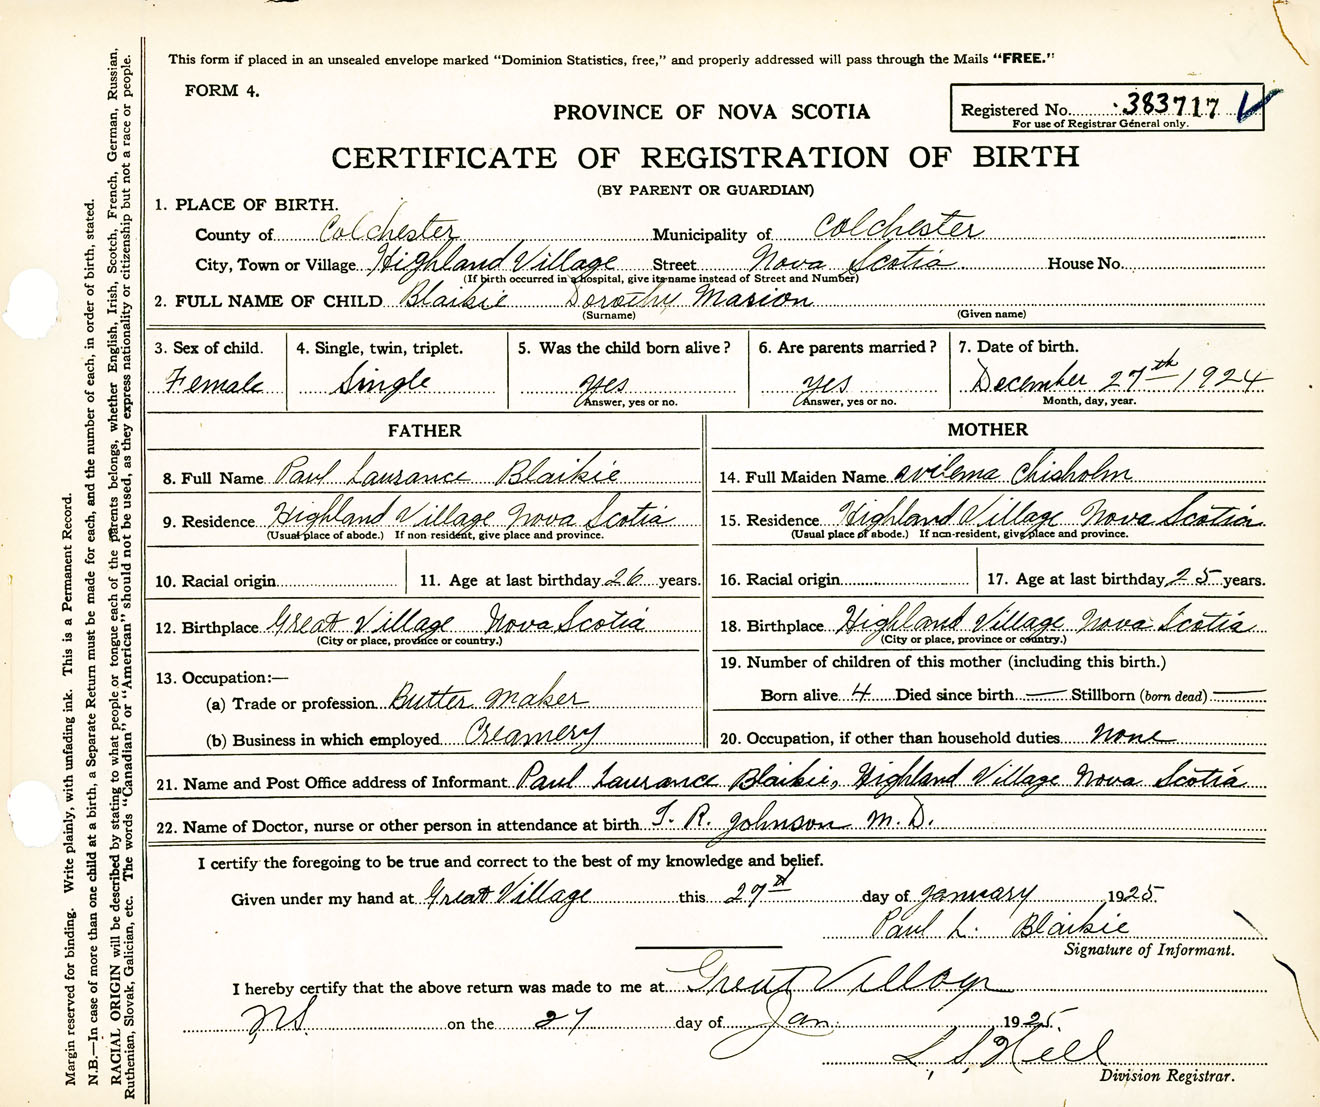 This form if placed in an unsealed envelope marked "Dominion Statistics, free," and properly addressed will pass through the Mails "FREE."
FORM 4.
PROVINCE OF NOVA SCOTIA
Registered No. 383717
For use of Registrar General only.
CERTIFICATE OF REGISTRATION OF BIRTH
(BY PARENT OR GUARDIAN)
1. PLACE OF BIRTH.
County of Colchester Municipality of Colchester
City, Town or Village Highland Village Street Nova Scotia House No.
(If birth occurred in a hospital, give its name instead of Street and Number)
2. FULL NAME OF CHILD Blaikie Dorothy Marion
(Surname) (Given name)
3. Sex of child. 4. Single, twin, triplet. 5. Was the child born alive? 6. Are parents married? 7. Date of birth.
Female Single Yes Yes December 27th 1924
Answer, yes or no. Answer, yes or no. Month, day, year.
FATHER MOTHER
8. Full Name Paul Laurance Blaikie 14. Full Maiden Name Chisholm
9. Residence Highland Village Nova Scotia 15. Residence Highland Village Nova Scotia
(Usual place of abode.) If non-resident, give place and province. (Usual place of abode.) If non-resident, give place and province.
10. Racial origin 11. Age at last birthday 26 years. 16. Racial origin 17. Age at last birthday 25 years.
12. Birthplace Great Village Nova Scotia 18. Birthplace Highland Village Nova Scotia
(City or place, province or country.) (City or place, province or country.)
13. Occupation:— 19. Number of children of this mother (including this birth.)
(a) Trade or profession Butter maker Born alive 4 Died since birth — Stillborn (born dead) —
(b) Business in which employed Creamery 20. Occupation, if other than household duties none
21. Name and Post Office address of Informant Paul Laurance Blaikie, Highland Village Nova Scotia
22. Name of Doctor, nurse or other person in attendance at birth T. R. Johnson M.D.
I certify the foregoing to be true and correct to the best of my knowledge and belief.
Given under my hand at Great Village this 27th day of January 1925.
Paul L. Blaikie
Signature of Informant.
I hereby certify that the above return was made to me at Great Village
N.S. on the 27 day of Jan. 1925.
L. S. Hill
Division Registrar.
Margin reserved for binding. Write plainly, with unfading ink. This is a Permanent Record.
N.B.—In case of more than one child at a birth, a Separate Return must be made for each, and the number of each, in order of birth, stated.
RACIAL ORIGIN will be described by stating to what people or tongue each of the parents belongs, whether English, Irish, Scotch, French, German, Russian,
Ruthenian, Slovak, Galician, etc. The words "Canadian" or "American" should not be used, as they express nationality or citizenship but not a race or people.